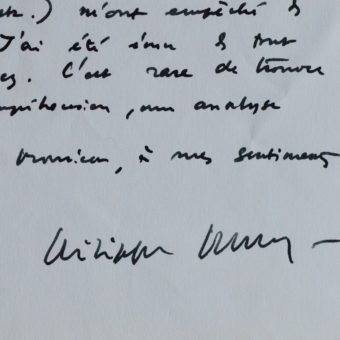 ) m'ont empêché de
J'ai été ému de tout
. C'est rare de trouver
compréhension, une analyse
Monsieur, à mes sentiments
Philippe